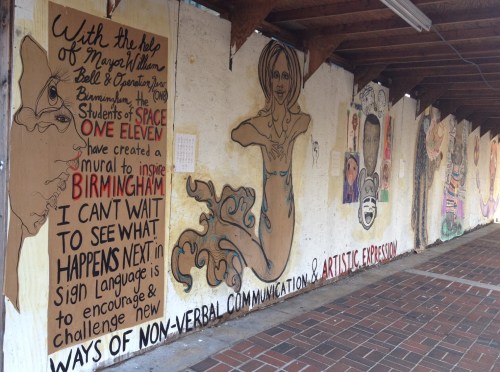 With the help
of Mayor William
Bell & Operation New
Birmingham (ONB) the
Students of SPACE
ONE ELEVEN
have created a
mural to inspire
BIRMINGHAM
I CANT WAIT
TO SEE WHAT
HAPPENS NEXT in
Sign Language is
to encourage &
challenge new
WAYS OF NON-VERBAL COMMUNICATION & ARTISTIC EXPRESSION